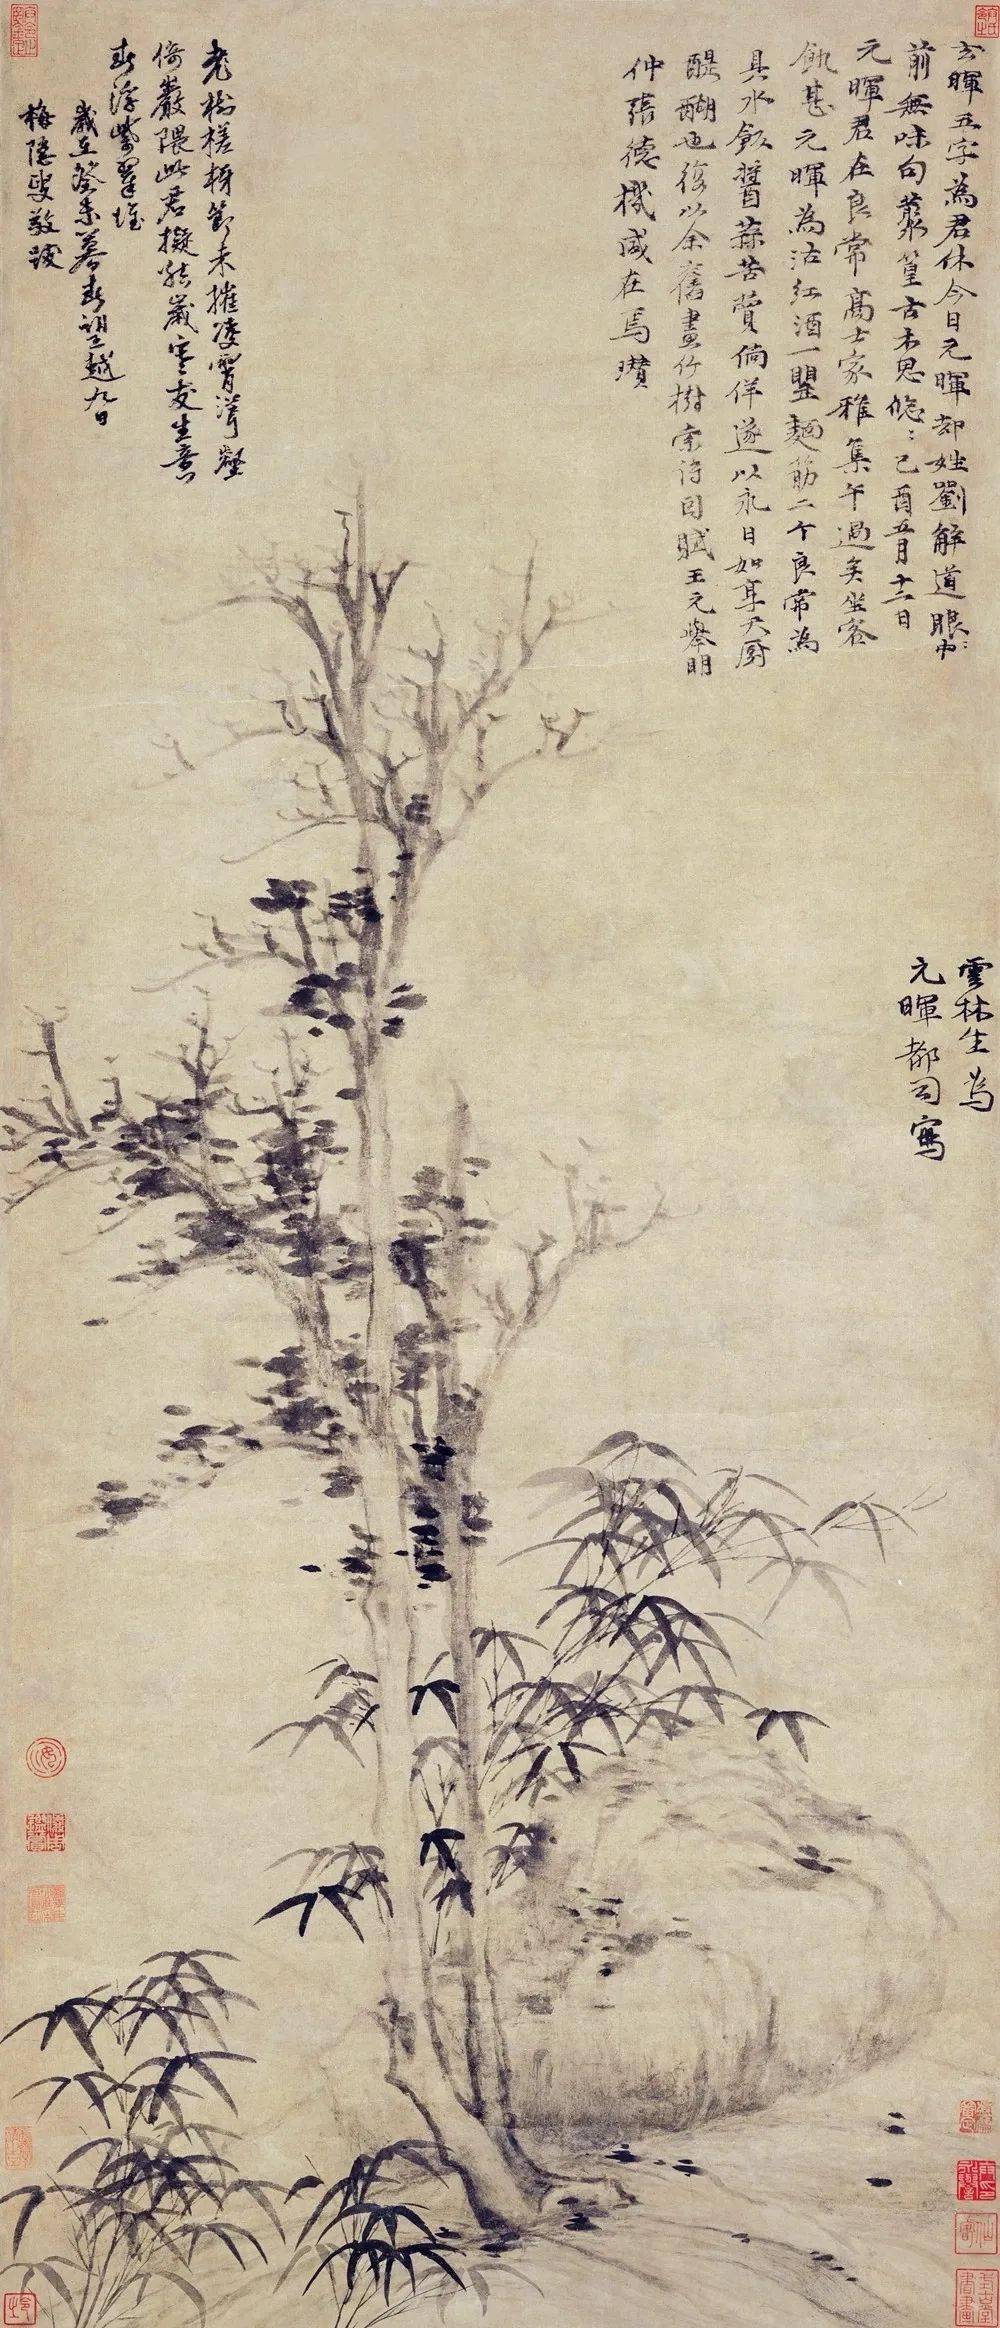 玄暉五字為君休今日元暉却姓劉解道眼中
前無味句叢篁古木思悠〻己酉五月十二日
元暉君在良常高士家雅集午過矣坐客
飢甚元暉為沽紅酒一罌麵筋二个良常為
具水飯醬蒜苦蕒徜徉遂以永日如享天廚
醍醐也復以余舊畫竹樹索詩因賦王元舉明
仲張德機咸在焉瓚
老樹槎枒節未摧凌霄聳壑
倚巖隈此君擬結歲寒友生意
春浮紫翠堆
歲在癸未暮春望越九日
梅隱叟敬跋
雲林生為
元暉都司寫